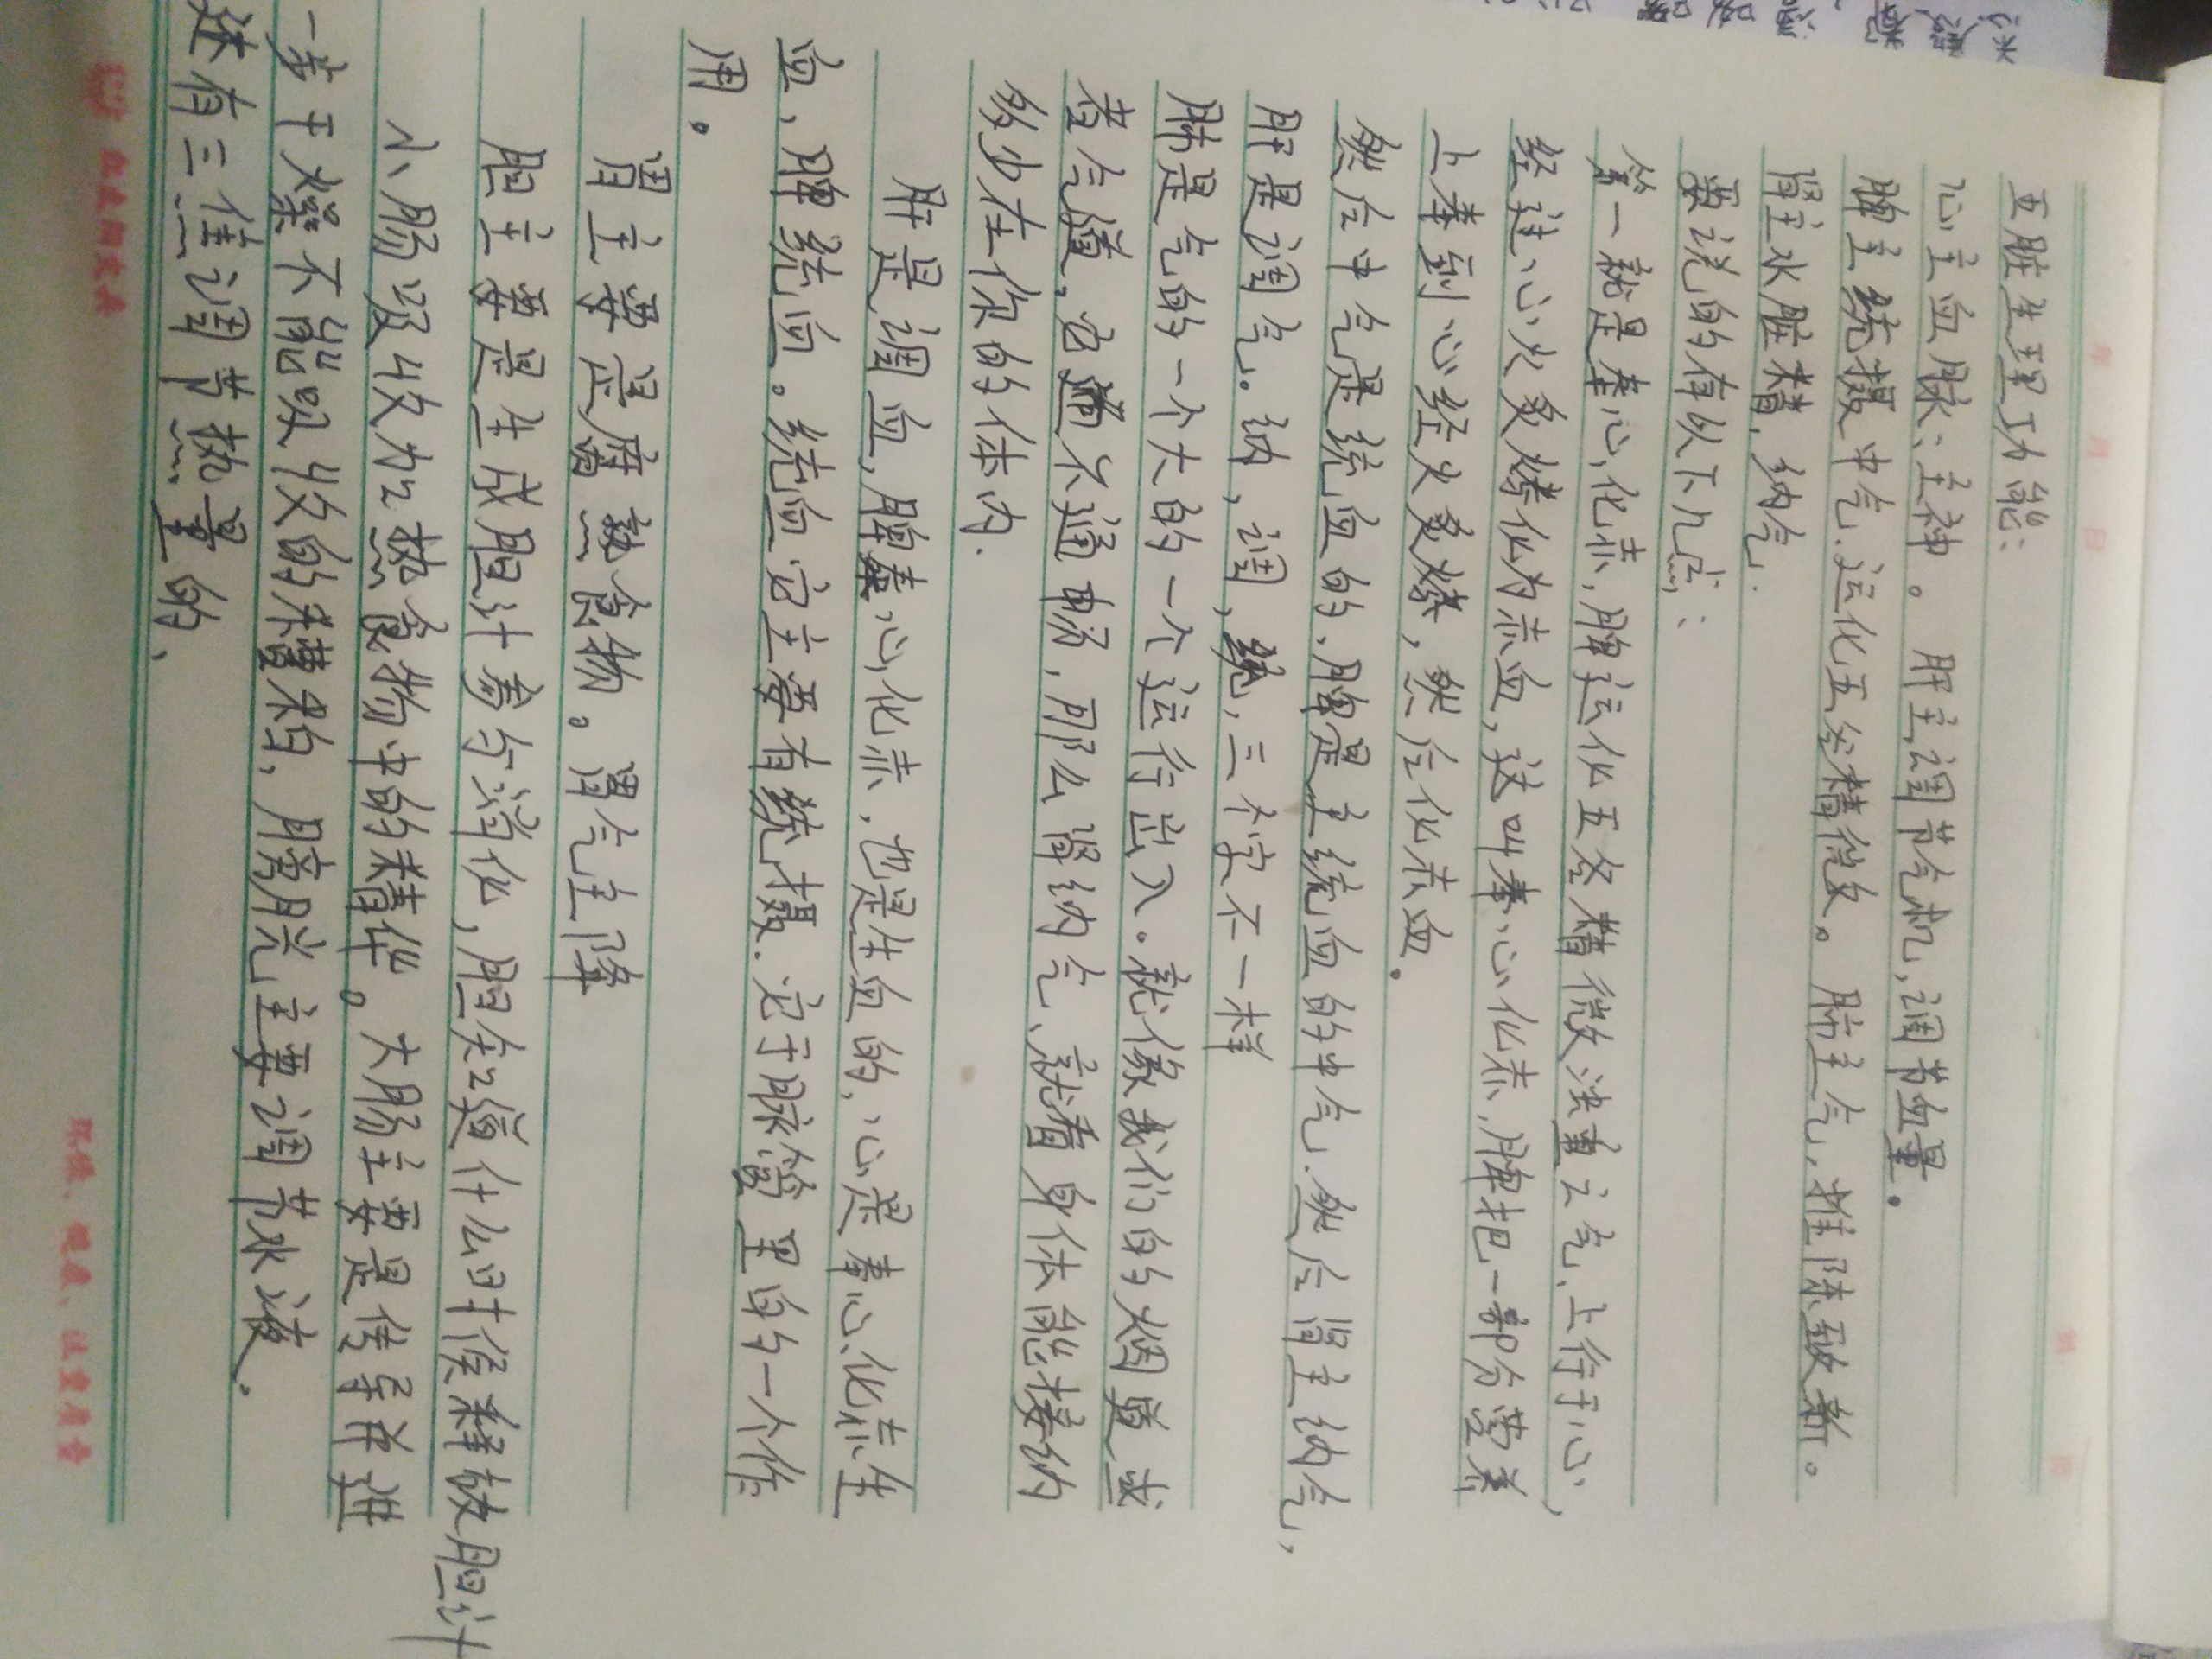 五脏生理功能：
心主血脉；主神。肝主调节气机，调节血量。
脾主统摄中气、运化五谷精微。肺主气，推陈致新。
肾主水脏精，纳气.
要说的有以下几点：
第一就是奉心化赤，脾运化五谷精微浓重之气、上行于心、
经过心火炙燎化为赤血，这叫奉心化赤，脾把一部分营养
上奉到心经火炙燎，然后化赤血.
然后中气是统血的、脾是主统血的中气.然后肾主纳气，
肝是调气。纳，调，统，三个字不一样
肺是气的一个大的一个运行出入。就像我们的烟道或
者气道，它通不通畅，那么肾纳气、就看身体能接纳
多少在你的体内.
肝是调血，脾奉心化赤，也是生血的，心是奉心化赤生
血，脾统血。统血它主要有统摄.它于脉管里的一个作
用。
胃主要是腐熟食物。胃气主降
胆主要是生成胆汁参与消化，胆会2算什么时侯释放胆汁
小肠吸收为2热食物中的精华。大肠主要是传导并进
一步干燥不能吸收的糟粕，膀胱主要调节水液.
还有三焦调节热量的、
年 月 日
第 页